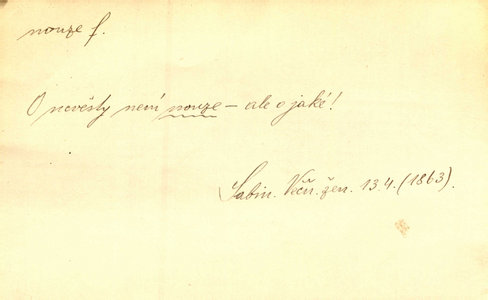 nouze f.
O nevěsty není nouze – ale o jaké!
Sabin. Věčn. žen. 13.4. (1863).